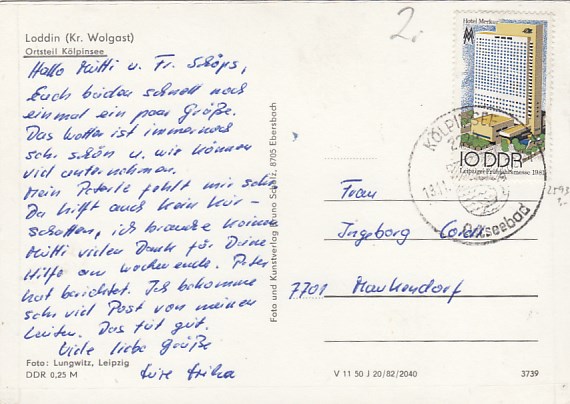 Loddin (Kr. Wolgast)
Ortsteil Kölpinsee
Hallo Mutti u. Fr. Schöps,
Euch beiden schnell noch
einmal ein paar Grüße.
Das Wetter ist immer noch
sehr schön u. wir können
viel unternehmen.
Mein Peterle fehlt mir sehr
Da hilft auch kein Kur-
schatten, ich brauche keinen
Mutti vielen Dank für Deine
Hilfe am Wochenende. Peter
hat berichtet. Ich bekomme
sehr viel Post von meinen
Leuten. Das tut gut.
Viele liebe Grüße
Eure Erika
Foto: Lungwitz, Leipzig
DDR 0,25 M
Foto und Kunstverlag Bruno Scholz, 8705 Ebersbach
2.
Hotel Merkur
10 DDR
Leipziger Frühjahrsmesse 1982
KÖLPINSEE
Ostseebad
2593
Frau
Ingeborg
7701
V 11 50 J 20/82/2040
3739